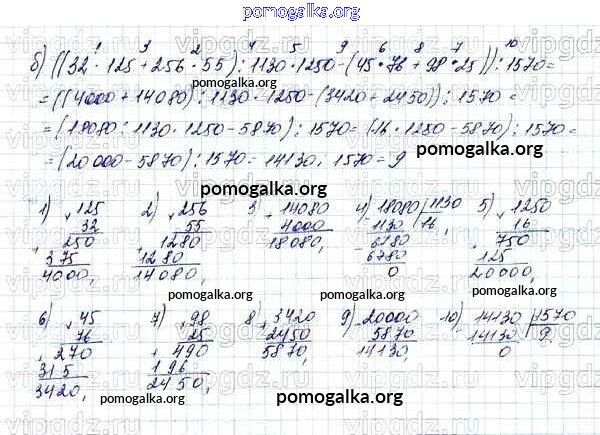 pomogalka.org
1 3 2 4 5 9 6 8 7 10
б) ((32 · 125 + 256 · 55) : 1130 · 1250 - (45 · 76 + 98 · 25)) : 1570 =
= ((4000 + 14080) : 1130 · 1250 - (3420 + 2450)) : 1570 =
= (18080 : 1130 · 1250 - 5870) : 1570 = (16 · 1250 - 5870) : 1570 =
= (20000 - 5870) : 1570 = 14130 : 1570 = 9
pomogalka.org
pomogalka.org
1) 125 2) 256 3 14080 4) 18080 1130 5) 1250
32 55 4000 1130 16, 16
250 1280 18080, 6780 750
375 1280 6780 125
4000, 14080, 0 20000,
pomogalka.org pomogalka.org pomogalka.org
6) 45 7) 98 8) 3420 9) 20000 10) 14130 1570
76 25 2450 5870 14130 9,
270 490 5870, 14130 0
315 196
3420, 2450,
pomogalka.org pomogalka.org
vipgdz.ru